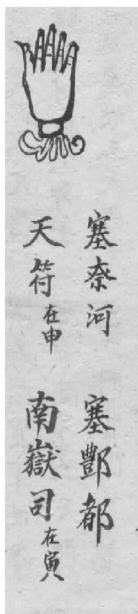 塞奈河　塞酆都
天符在申　南嶽司在寅